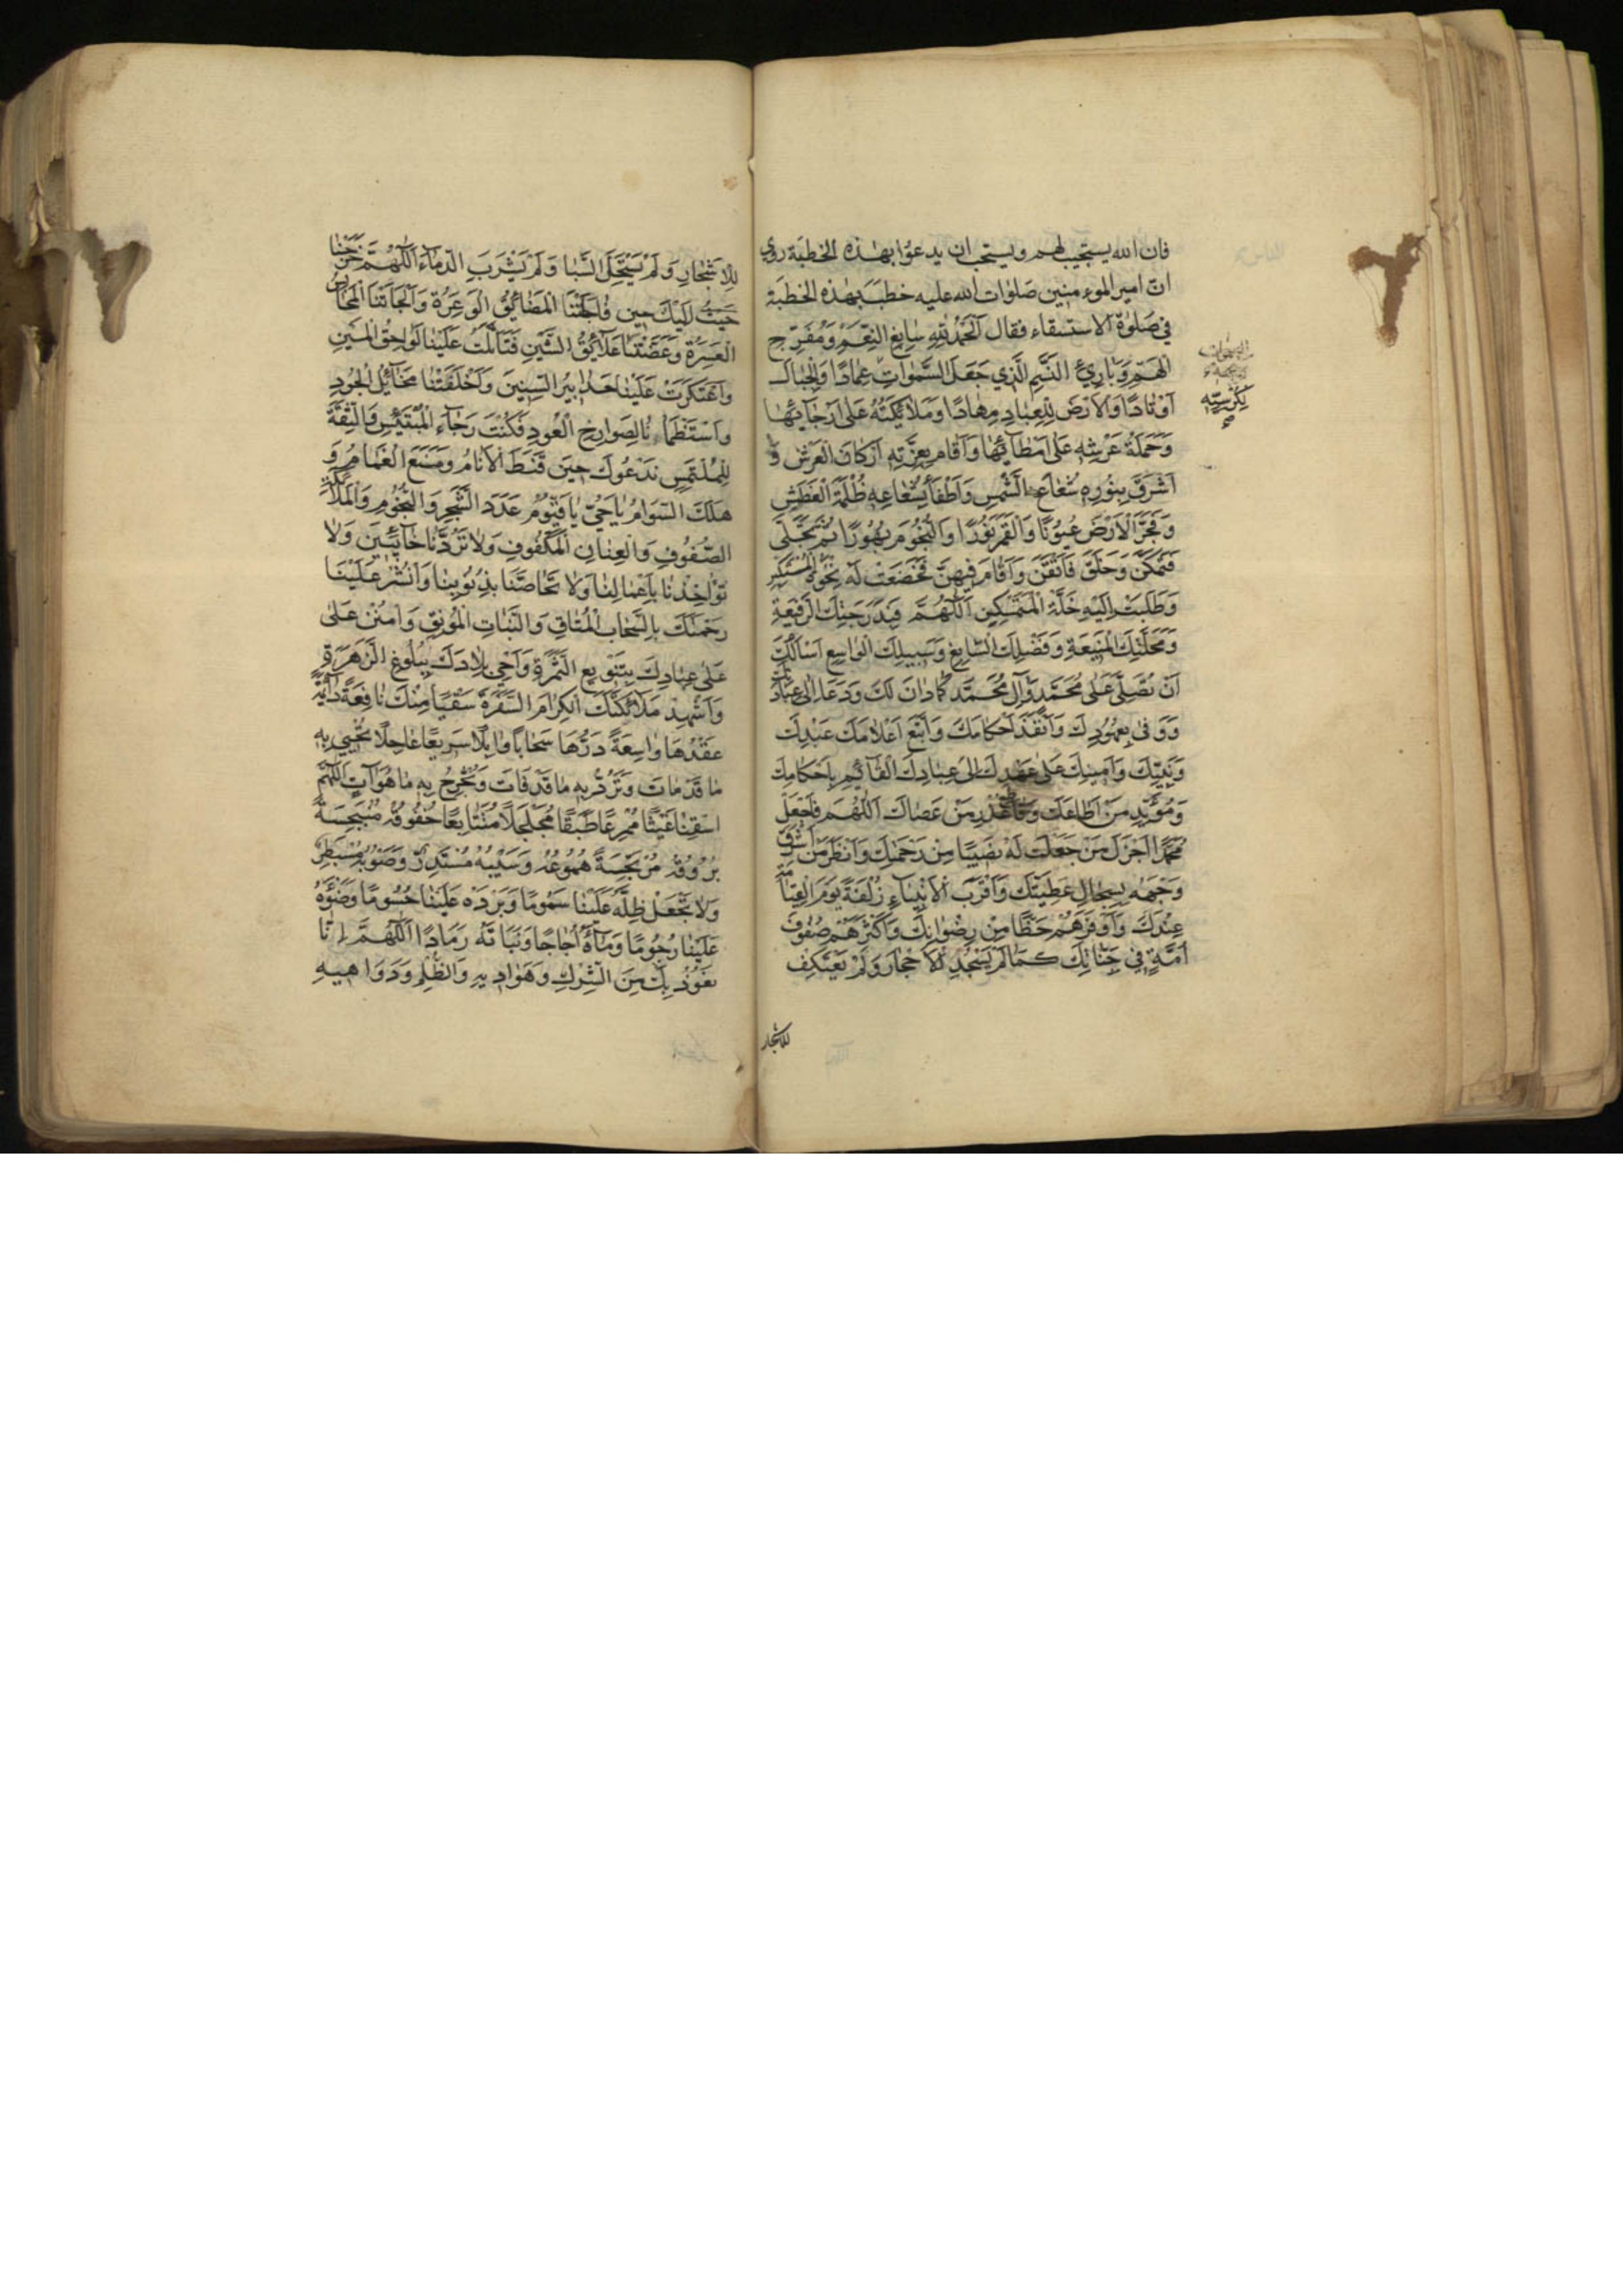 فان الله يستجيب لهم ويستحب ان يدعوا بهذه الخطبة روي
ان امير المومنين صلوات الله عليه خطب بهذه الخطبة
في صلوة الاستسقاء فقال اَلْحَمْدُ لِلّٰهِ سابِغِ النِّعَمِ وَمُفَرِّجِ
الْهَمِّ وَبارِئِ النَّسَمِ الَّذي جَعَلَ السَّمٰواتِ عِمادًا وَالْجِبالَ
اَوْتادًا وَالْاَرْضَ لِلْعِبادِ مِهادًا وَمَلائِكَتَهُ عَلى اَرْجائِها
وَحَمَلَةَ عَرْشِهِ عَلى اَمْطائِها وَاَقامَ بِعِزَّتِهِ اَرْكانَ الْعَرْشِ وَ
اَشْرَقَ بِنُورِهِ شُعاعَ الشَّمْسِ وَاَطْفَأَ بِشُعاعِهِ ظُلْمَةَ الْغَطَشِ
وَفَجَّرَ الْاَرْضَ عُيُونًا وَالْقَمَرَ نُورًا وَالنُّجُومَ بُهُورًا ثُمَّ تَجَلّى
فَتَمَكَّنَ وَخَلَقَ فَاَتْقَنَ وَاَقامَ فَهَيْمَنَ فَخَضَعَتْ لَهُ نَخْوَةُ الْمُسْتَكْبِرِ
وَطَلَبَتْ اِلَيْهِ خَلَّةُ الْمُتَمَسْكِنِ اَللّٰهُمَّ فَبِدَرَجَتِكَ الرَّفيعَةِ
وَمَحَلَّتِكَ الْمَنيعَةِ وَفَضْلِكَ السّابِغِ وَسَبيلِكَ الْواسِعِ اَسْاَلُكَ
اَنْ تُصَلِّيَ عَلى مُحَمَّدٍ وَآلِ مُحَمَّدٍ كَما دانَ لَكَ وَدَعا اِلى عِبادَتِكَ
وَوَفى بِعُهُودِكَ وَاَنْفَذَ اَحْكامَكَ وَاتَّبَعَ اَعْلامَكَ عَبْدِكَ
وَنَبِيِّكَ وَاَمينِكَ عَلى عَهْدِكَ اِلى عِبادِكَ الْقائِمِ بِاَحْكامِكَ
وَمُؤَيِّدِ مَنْ اَطاعَكَ وَقاطِعِ عُذْرِ مَنْ عَصاكَ اَللّٰهُمَّ فَاجْعَلْ
مُحَمَّدًا اَجْزَلَ مَنْ جَعَلْتَ لَهُ نَصيبًا مِنْ رَحْمَتِكَ وَاَنْضَرَ مَنْ اَشْرَقَ
وَجْهُهُ بِسِجالِ عَطِيَّتِكَ وَاَقْرَبَ الْاَنْبِياءِ زُلْفَةً يَوْمَ الْقِيامَةِ
عِنْدَكَ وَاَوْفَرَهُمْ حَظًّا مِنْ رِضْوانِكَ وَاَكْثَرَهُمْ صُفُوفَ
اُمَّةٍ في جِنانِكَ كَما لَمْ يَسْجُدْ لِلْاَحْجارِ وَلَمْ يَعْتَكِفْ
لكرسيّه
صح
للاشجار
لِلْاَشْجارِ وَلَمْ يَسْتَحِلَّ السِّبا وَلَمْ يَشْرَبِ الدِّماءَ اَللّٰهُمَّ خَرَجْنا
اِلَيْكَ حينَ فاجَاَتْنَا الْمَضائِقُ الْوَعِرَةُ وَاَلْجَاَتْنَا الْمَحابِسُ
الْعَسِرَةُ وَعَضَّتْنا عَلائِقُ الشَّيْنِ فَتَاَثَّلَتْ عَلَيْنا لَواحِقُ الْمَيْنِ
وَاعْتَكَرَتْ عَلَيْنا حَدابيرُ السِّنينَ وَاَخْلَفَتْنا مَخائِلُ الْجُودِ
وَاسْتَظْمَاْنا لِصَوارِخِ الْعُودِ فَكُنْتَ رَجاءَ الْمُبْتَئِسِ وَالثِّقَةَ
لِلْمُلْتَمِسِ نَدْعُوكَ حينَ قَنَطَ الْاَنامُ وَمُنِعَ الْغَمامُ وَ
هَلَكَ السَّوامُ ياحَيُّ ياقَيُّومُ عَدَدَ الشَّجَرِ وَالنُّجُومِ وَالْمَلائِكَةِ
الصُّفُوفِ وَالْعِنانِ الْمَكْفُوفِ وَلاتَرُدَّنا خائِبينَ وَلا
تُؤاخِذْنا بِاَعْمالِنا وَلا تُحاصَّنا بِذُنُوبِنا وَانْشُرْ عَلَيْنا
رَحْمَتَكَ بِالسَّحابِ الْمُتاقِ وَالنَّباتِ الْمُونِقِ وَامْنُنْ عَلى
عَلى عِبادِكَ بِتَنْويعِ الثَّمَرَةِ وَاَحْيِ بِلادَكَ بِبُلُوغِ الزَّهَرَةِ
وَاَشْهِدْ مَلائِكَتَكَ الْكِرامَ السَّفَرَةَ سَقْيًا مِنْكَ نافِعَةً دائِمَةً
غَزْرُها واسِعَةً دَرُّها سَحابًا وابِلًا سَريعًا عاجِلًا تُحْيي بِهِ
ما قَدْ ماتَ وَتَرُدُّ بِهِ ما قَدْ فاتَ وَتُخْرِجُ بِهِ ما هُوَ آتٍ اَللّٰهُمَّ
اسْقِنا غَيْثًا مُمْرِعًا طَبَقًا مُجَلْجَلًا مُتَتابِعًا خُفُوقُهُ مُنْبَجِسَةً
بُرُوقُهُ مُرْتَجِسَةً هُمُوعُهُ وَسَيْبُهُ مُسْتَدِرٌّ وَصَوْبُهُ مُسْبَطِرٌّ
وَلا تَجْعَلْ ظِلَّهُ عَلَيْنا سَمُومًا وَبَرْدَهُ عَلَيْنا حُسُومًا وَضَوْءَهُ
عَلَيْنا رُجُومًا وَماءَهُ اُجاجًا وَنَباتَهُ رَمادًا اَللّٰهُمَّ اِنّا
نَعُوذُ بِكَ مِنَ الشِّرْكِ وَهَواديهِ وَالظُّلْمِ وَدَواهيهِ